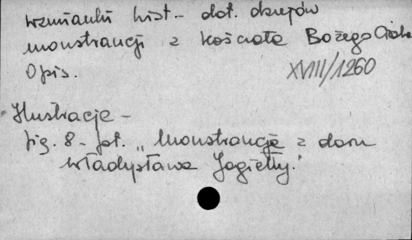 wzmianki hist. dot. dziejów
monstrancji z kościoła Bożego Ciała
Opis.
XVIII/1260
Ilustracje -
fig. 8 - fot. "Monstrancja z daru
Władysława Jagiełły."